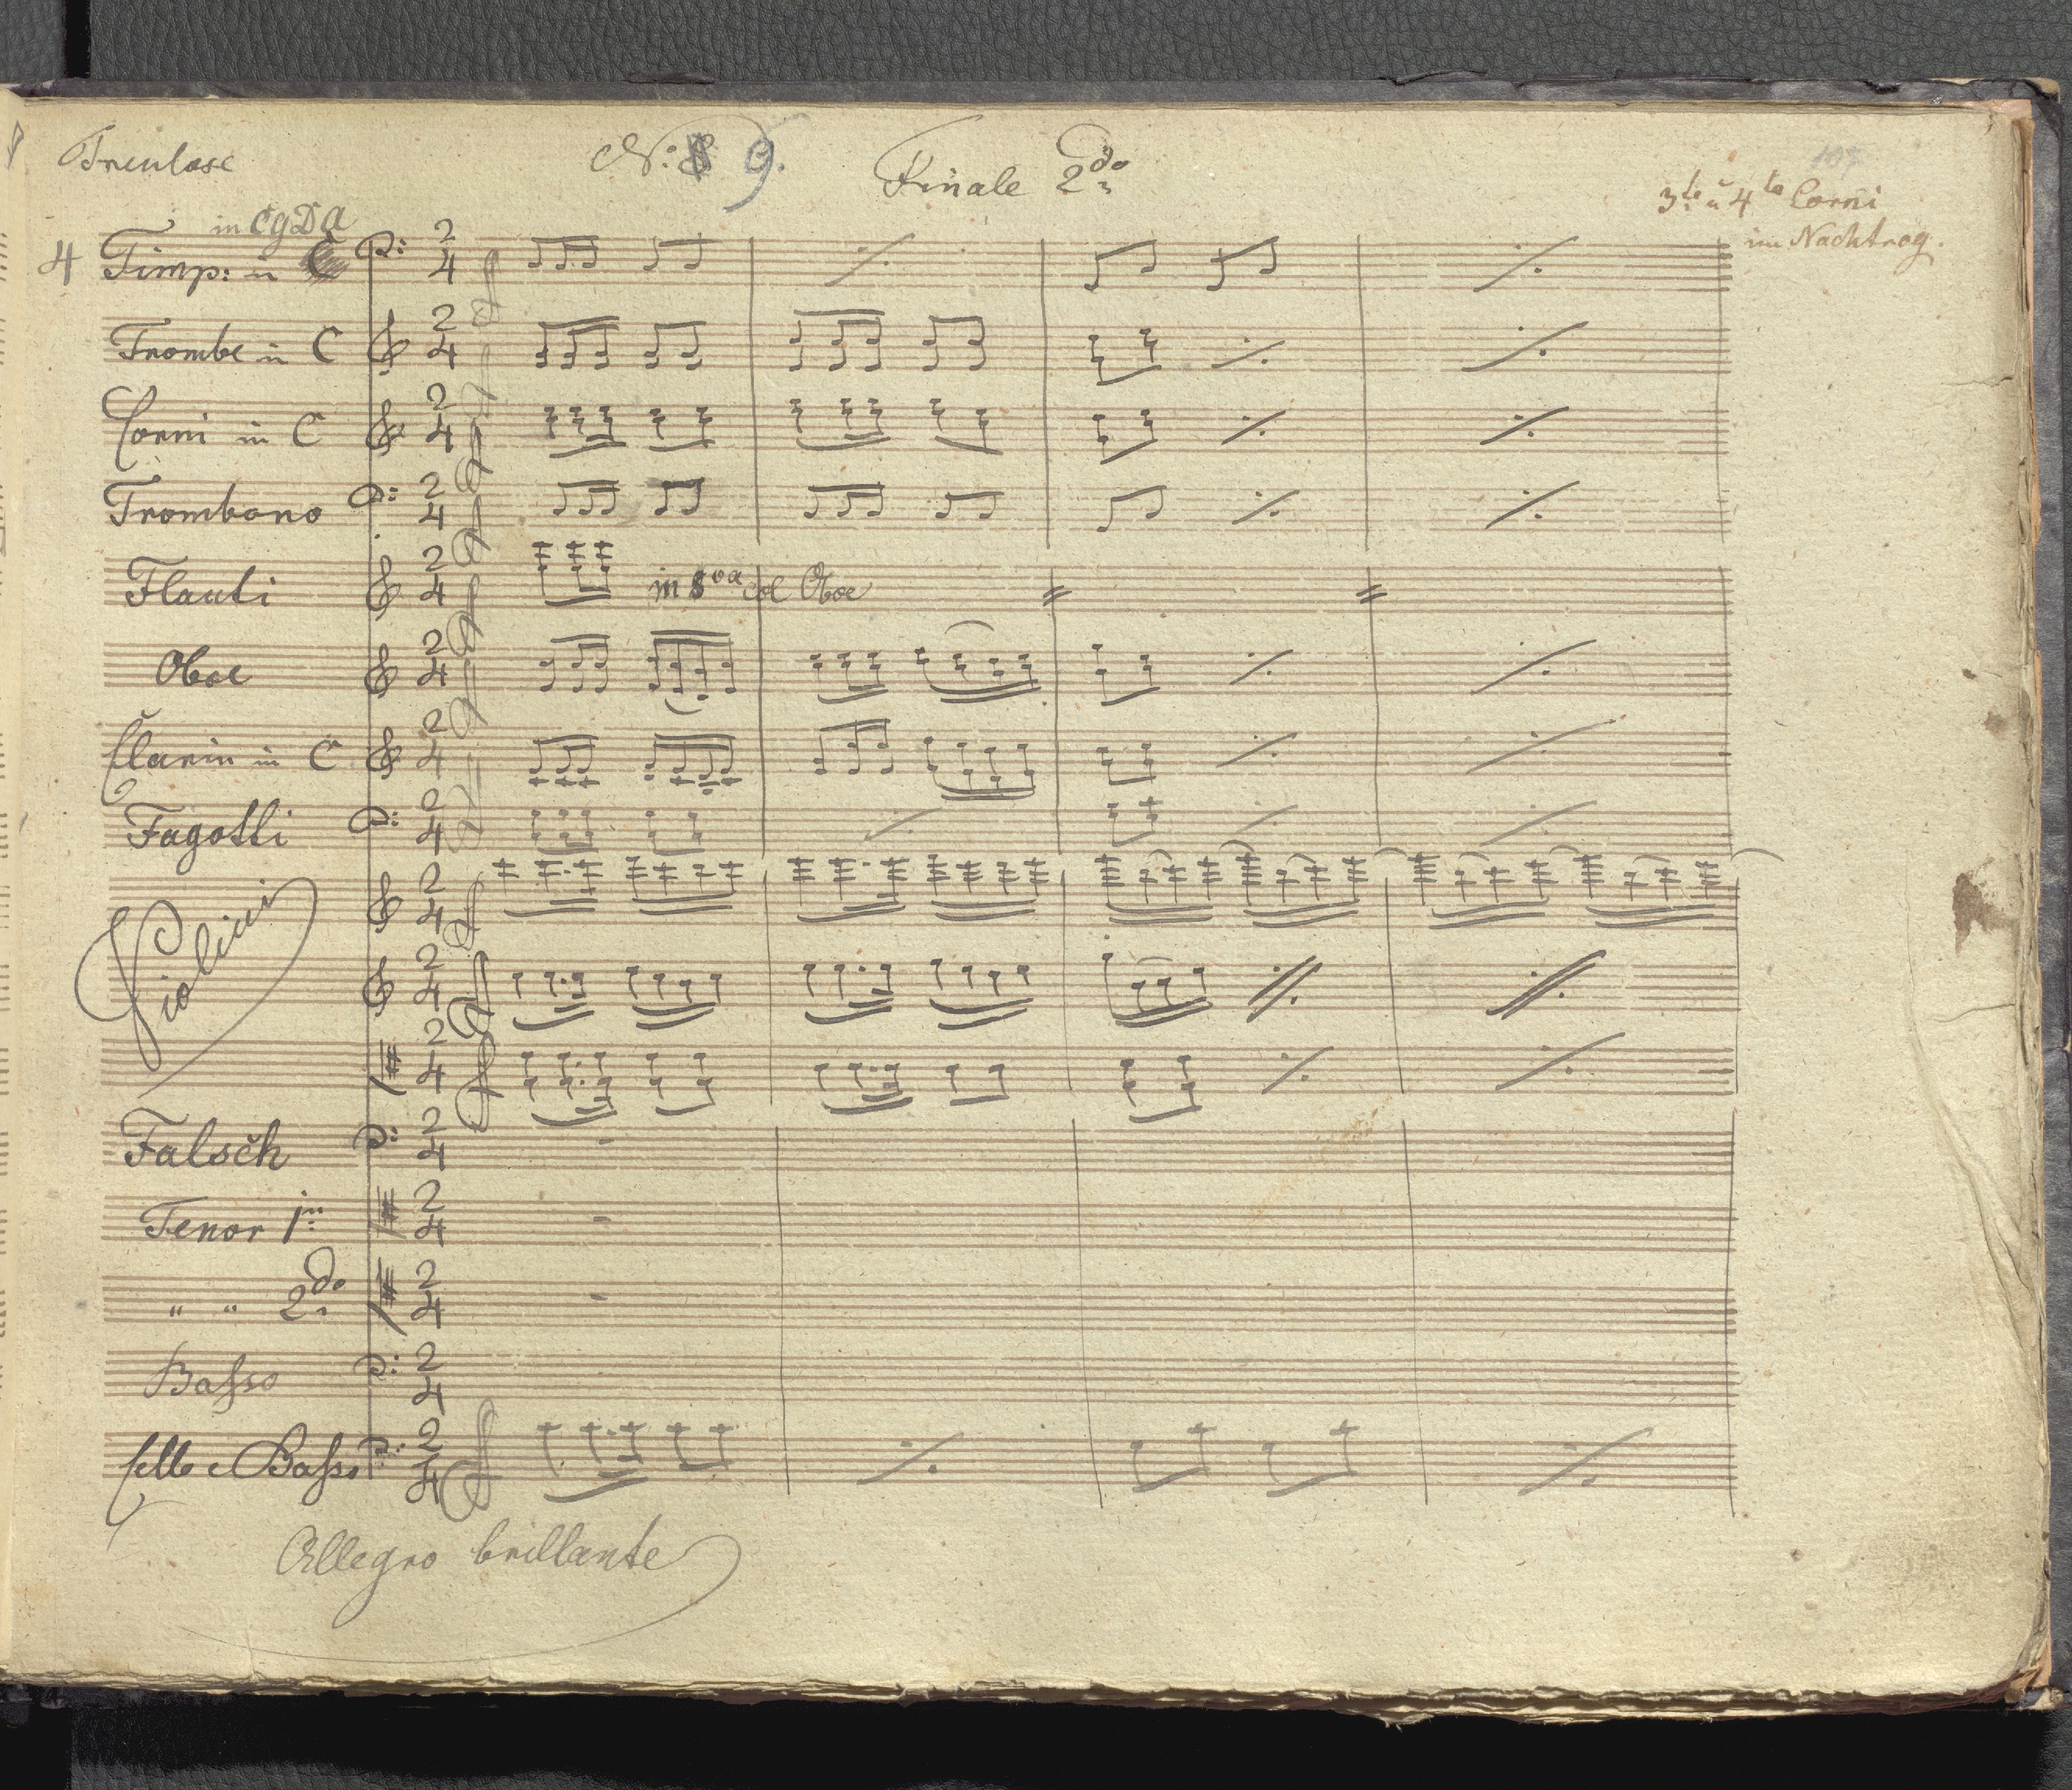 Treulose
No: 9.
Finale 2do
3te u 4te Corni
im Nachtrag.
in C g D a
4 Timp: in C
Trombe in C
Corni in C
Trombono
Flauti
in 8va col Oboe
Oboe
Clarin in C
Fagotti
Violini
Falsch
Tenor 1mo
" " 2do
Basso
Cello e Basso
Allegro brillante